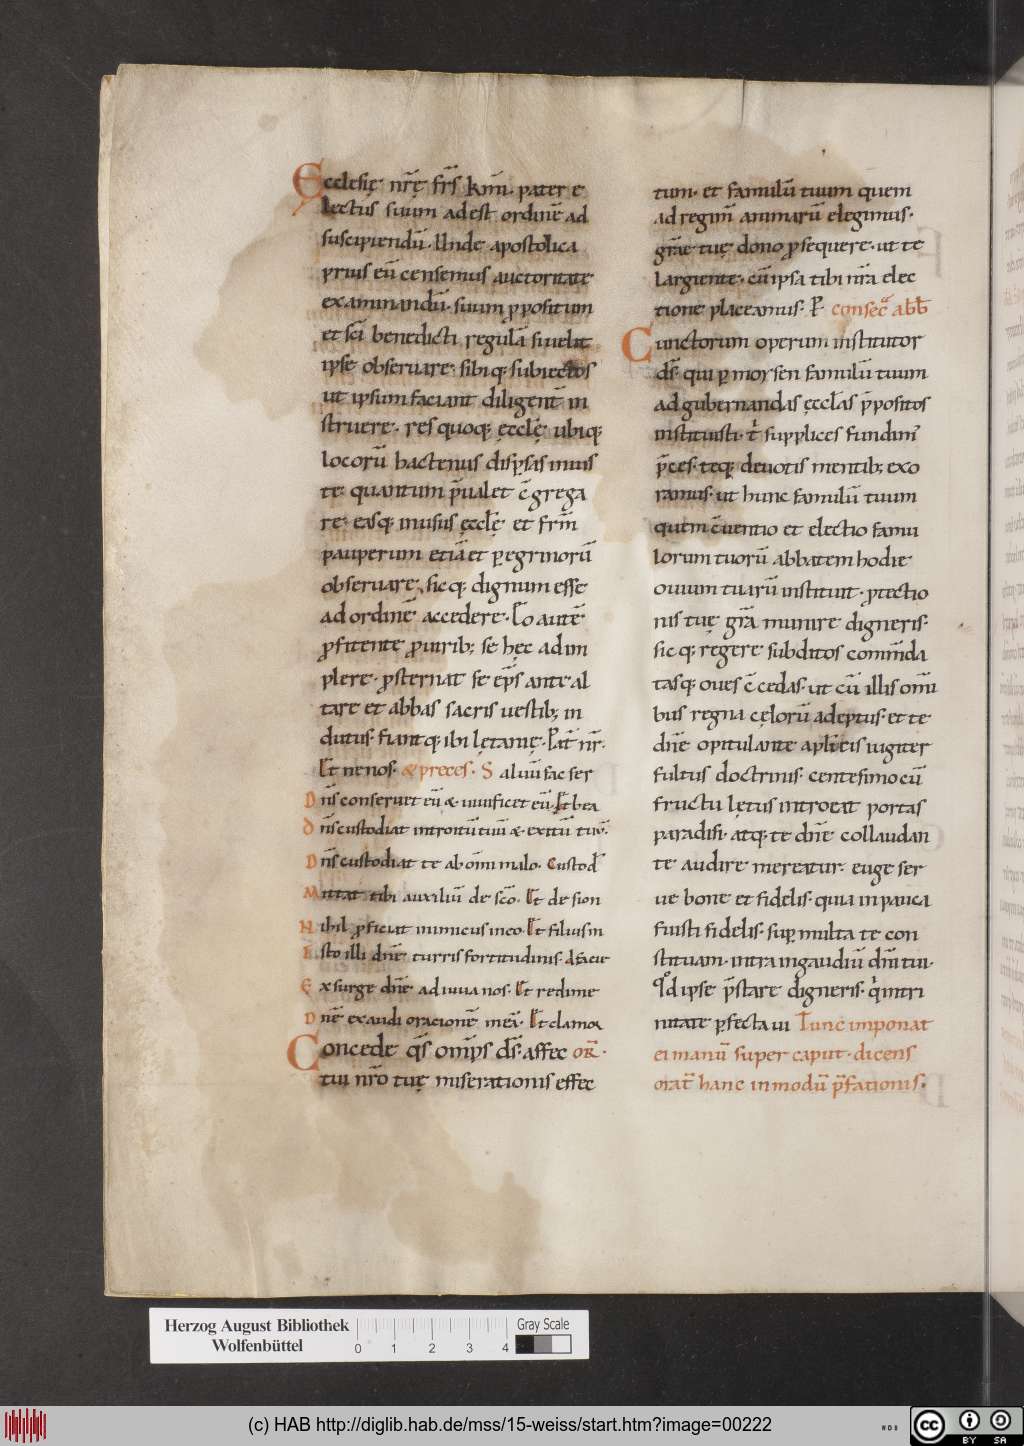 Ecclesię nr̄ę fr̄s km̄i. pater e
lectus suum adest ordinē ad
suscipiendū. Unde apostolica
prius eū censemus auctoritate
examinandū. suum ppositum
et sc̄i benedicti regulā si uelit
ipse obseruare. sibiq; subiectos
ut ipsum faciant diligent̄ in
struere. res quoq; ęcclę̄ ubiq;
locorū hactenus dispsas inuis
te. quantum p̄ualet c̄grega
re. easq; in usus ęcclę̄ et fr̄m
pauperum etiā et peregrinorū
obseruare, sic q; dignum esse
ad ordinē accedere. Eo autē
profitente p uirib; se hęc adim
plere. psternat se ep̄s ante al
tare et abbas sacris uestib; in
dutus. fiantq; ibi lętanię. Pat̄ nr̄.
Et ne nos. & preces. S aluū fac ser
Dn̄s conseruet eū & uiuificet eū. Et bea
dn̄s custodiat introitū tuū & exitū tuū.
Dn̄s custodiat te ab om̄i malo. Custod̄
Mittat tibi auxiliū de sc̄o. Et de sion
Nihil pficiat inimicus in eo. Et filius in
Esto illi dn̄e turris fortitudinis. A facie
Exsurge dn̄e adiuua nos. Et redime
Dn̄e exaudi oracionē meā. Et clamor
Concede qs̄ omp̄s ds̄. affec or̄.
tui nr̄o tuę miserationis effec
tum. et famulū tuum quem
ad regim̄ animarū elegimus.
gr̄ae tuę dono psequere. ut te
largiente. cū ipsa tibi nr̄a elec
tione placeamus. P̄ consec̄ abb̄
Cunctorum operum institutor
ds̄. qui p moysen famulū tuum
ad gubernandas ęccl̄as p̄positos
instituisti. t̄ supplices fundim̄
p̄ces. teq; deuotis mentib; exo
ramus. ut hunc famulū tuum
quem c̄uentio et electio famu
lorum tuorū abbatem hodie
ouium tuarū instituit. ptectio
nis tuę gr̄a munire digneris.
sic q; regere subditos comm̄da
tasq; oues c̄cedas. ut cū illis om̄i
bus regna cęlorū adeptus. et te
dn̄e opitulante apl̄icis iugiter
fultus doctrinis. centesimo cū
fructu lętus introeat portas
paradisi. atq; te dn̄e collaudan
te audire mereatur. euge ser
ue bone et fidelis. quia in pauca
fuisti fidelis. sup multa te con
stituam. intra in gaudiū dn̄i tui.
Qd̄ ipse p̄stare digneris. q̄ in tri
nitate pfecta ui Tunc imponat
ei manū super caput. dicens
orat̄ hanc in modū p̄fationis.
Herzog August Bibliothek
Wolfenbüttel
0 1 2 3 4
Gray Scale
(c) HAB http://diglib.hab.de/mss/15-weiss/start.htm?image=00222
cc BY SA